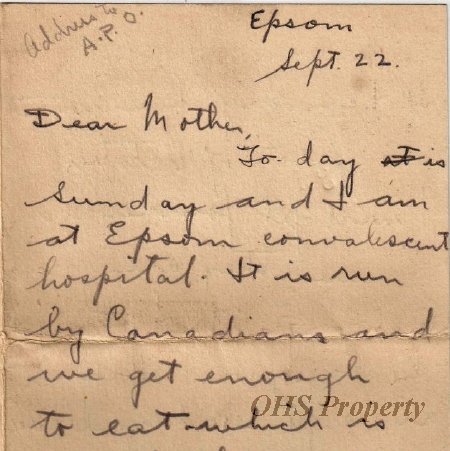 Address to
A.P.O.
Epsom
Sept. 22.
Dear Mother,
To-day is
Sunday and I am
at Epsom convalescent
hospital. It is run
by Canadians and
we get enough
to eat which is
OHS Property